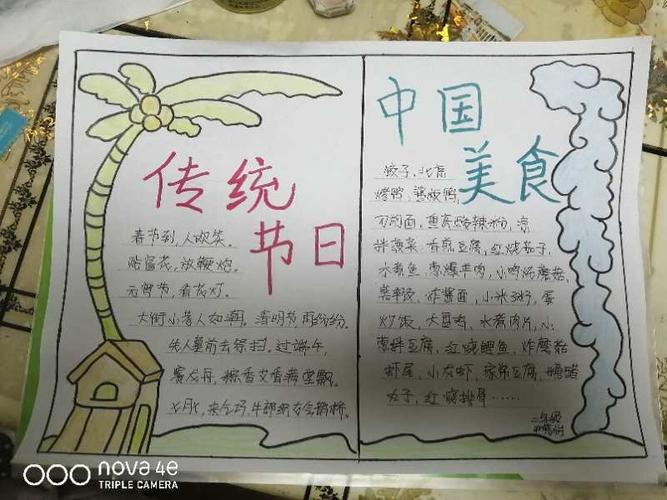 传统
节日
春节到,人欢笑。
贴窗花,放鞭炮。
元宵节,看花灯。
大街小巷人如潮。清明节,雨纷纷。
先人墓前去祭扫,过端午,
赛龙舟,粽香艾香满堂飘。
七月七,来乞巧,牛郎织女会鹊桥。
中国
美食
饺子,北京
烤鸭,酱板鸭,
刀削面,重庆酸辣粉,凉
拌菠菜,香煎豆腐,红烧茄子,
水煮鱼,葱爆羊肉,小鸡炖蘑菇,
炸酱面,小米粥,蛋
炒饭,水煮肉片,小
葱拌豆腐,红烧鲤鱼,炸蘑菇
虾尾,小龙虾,家常豆腐,
丸子,红烧排骨……
二年级
nova 4e
TRIPLE CAMERA